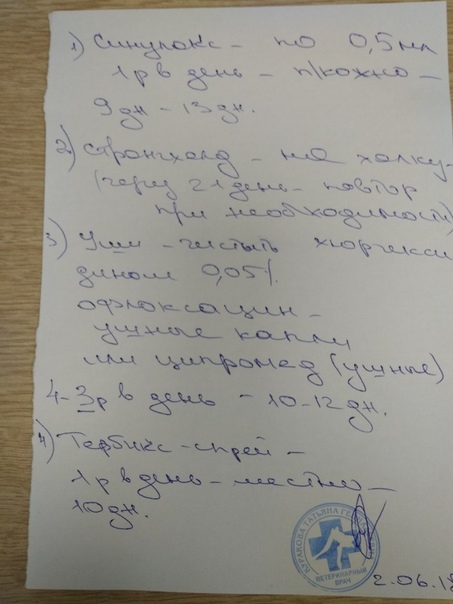 1) Синулокс – по 0,5 мл
1р в день – п/кожно –
9 дн – 13 дн.
2) Стронгхолд – на холку
(через 21 день – повтор
при необходимости)
3) Уши – чистить хлоргекси
дином 0,05%.
офлоксацин –
ушные капли
или ципромед (ушные)
4-3р в день – 10-12 дн.
4) Тербикс-спрей –
1р в день – местно –
10 дн.
ТАТЬЯНА
ВЕТЕРИНАРНЫЙ
ВРАЧ
2.06.18